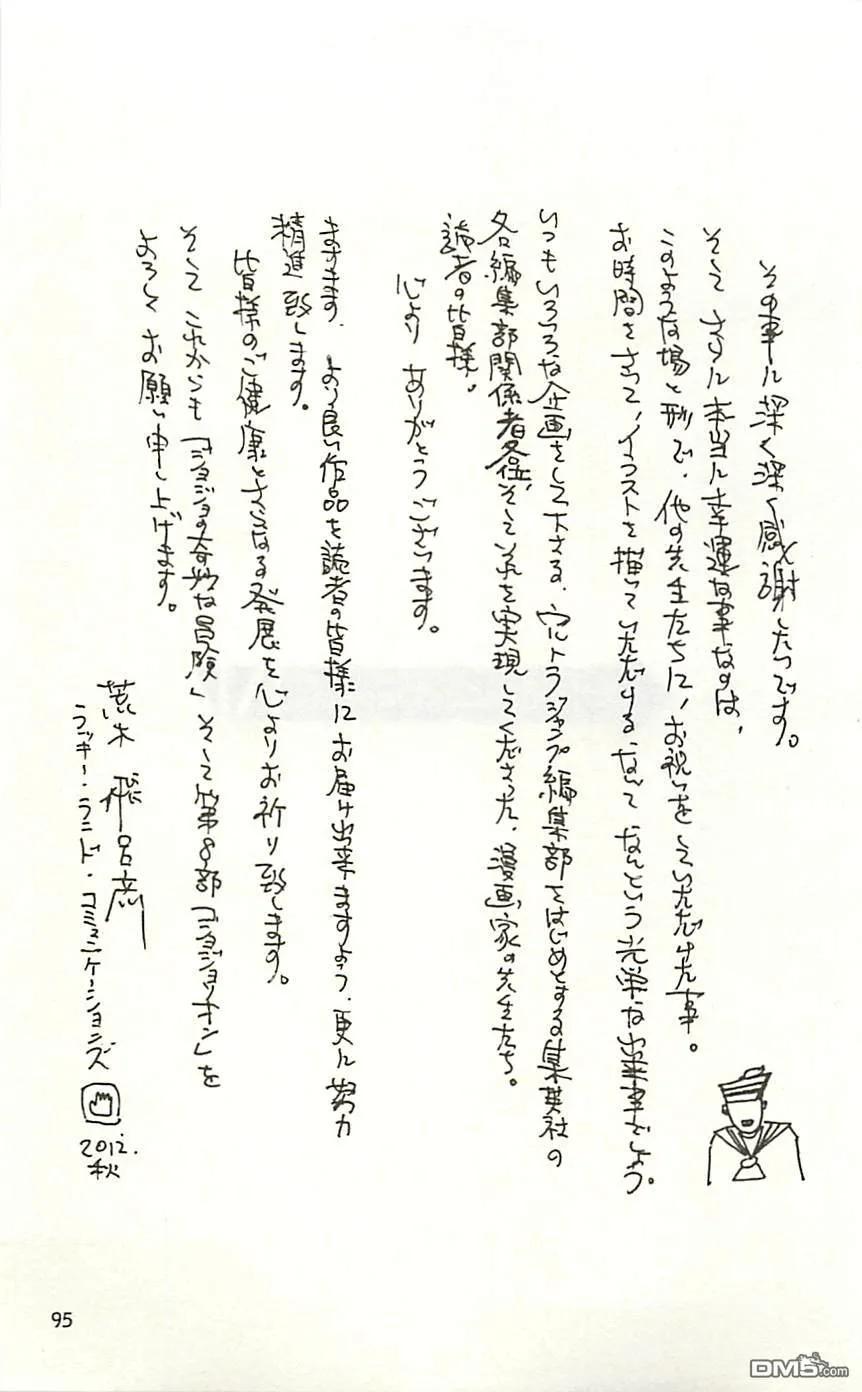 その事に深く深く感謝したいです。
そして さらに本当に幸運な事なのは、
このような場と形で、他の先生たちに、お祝いをしていただけた事。
お時間をさいて、イラストを描いていただけるなんて なんという光栄な出来事でしょう。
いつもいろいろな企画をして下さる、ウルトラジャンプ編集部をはじめとする集英社の
各編集部関係者各位、そしてそれを実現してくださった、漫画家の先生たち。
読者の皆様。
心より ありがとうございます。
ますます、より良い作品を読者の皆様にお届け出来ますよう、更に努力
精進致します。
皆様のご健康とさらなる発展を心よりお祈り致します。
そして これからも「ジョジョの奇妙な冒険」そして第8部「ジョジョリオン」を
よろしくお願い申し上げます。
荒木飛呂彦
ラッキー・ランド・コミュニケーションズ
2012.
秋
95
DM5.com